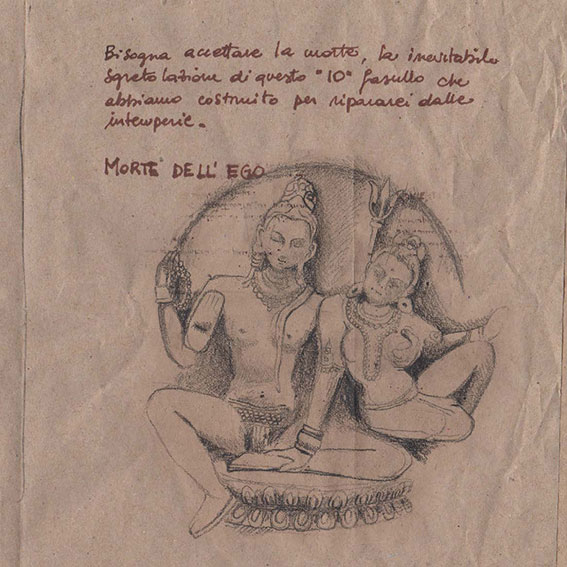 Bisogna accettare la morte, la inevitabile
sgretolazione di questo "IO" fasullo che
abbiamo costruito per ripararci dalle
intemperie.
MORTE DELL'EGO